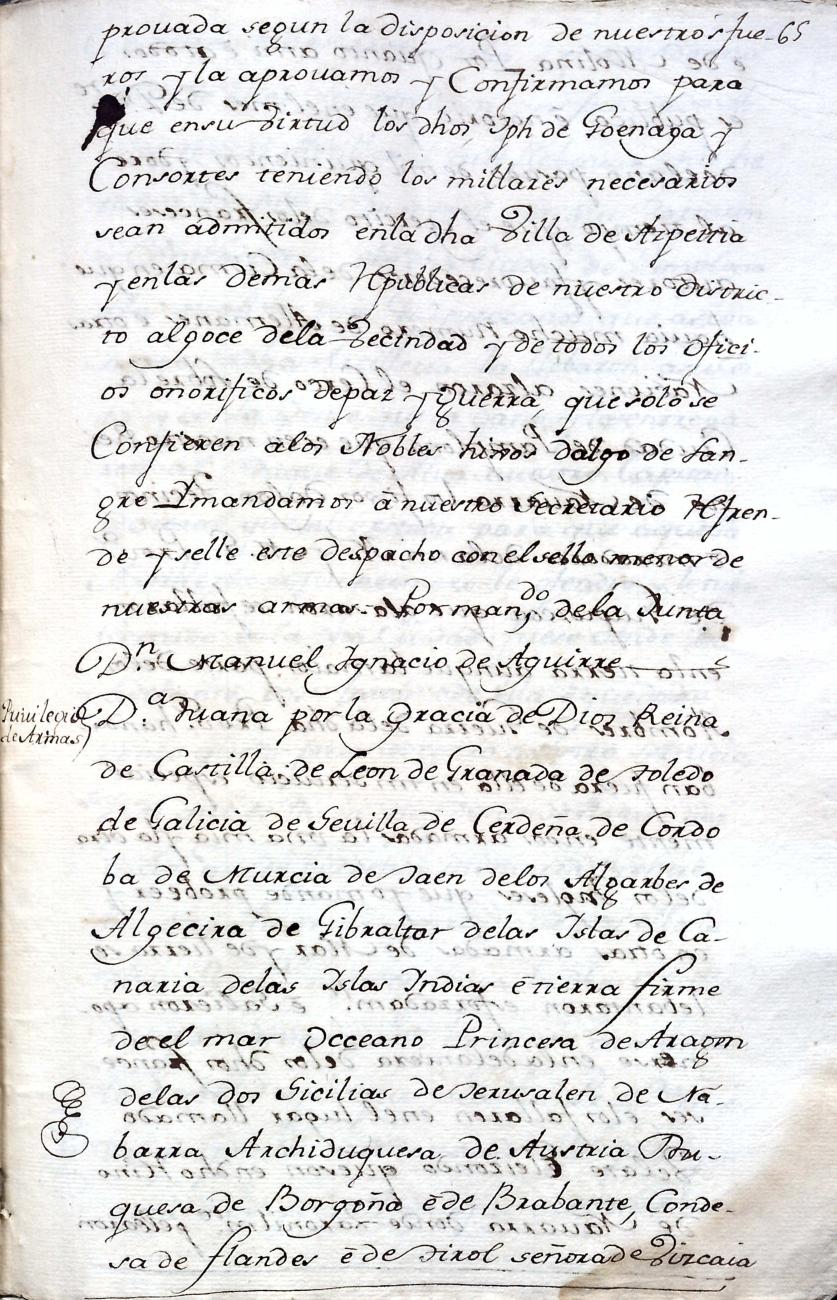 prouada segun la disposicion de nuestros fue- 65
ros y la aprouamos y Confirmamos para
que ensu Virtud los dhos Jph de Goenaga y
Consortes teniendo los millares necesarios
sean admitidos enla dha Villa de Azpeitia
y enlas demas Rpublicas de nuestro distric-
to al goce dela Vecindad y de todos los ofici-
os onorificos depaz y guerra, que solo se
Confieren alos Nobles hixos dalgo de San-
gre Ymandamos â nuestro Secretario Rfren-
de y selle este despacho conel sello menor de
nuestras armas. Por man.do dela Junta
D.n Manuel Ignacio de Aguirre
Priuilegio
de Armas
D.a Juana por la Gracia de Dios Reina
de Castilla, de Leon de Granada de Toledo
de Galicia de Seuilla de Cerdeña de Cordo
ba de Murcia de Jaen delos Algarbes de
Algecira de Gibraltar delas Islas de Ca-
naria delas Islas Indias ê tierra firme
de el mar Occeano Princesa de Aragon
delas dos Sicilias de Jerusalen de Na-
barra Archiduquesa de Austria Du-
quesa de Borgoña ê de Brabante, Conde-
sa de flandes ê de Tirol señora de Vizcaia